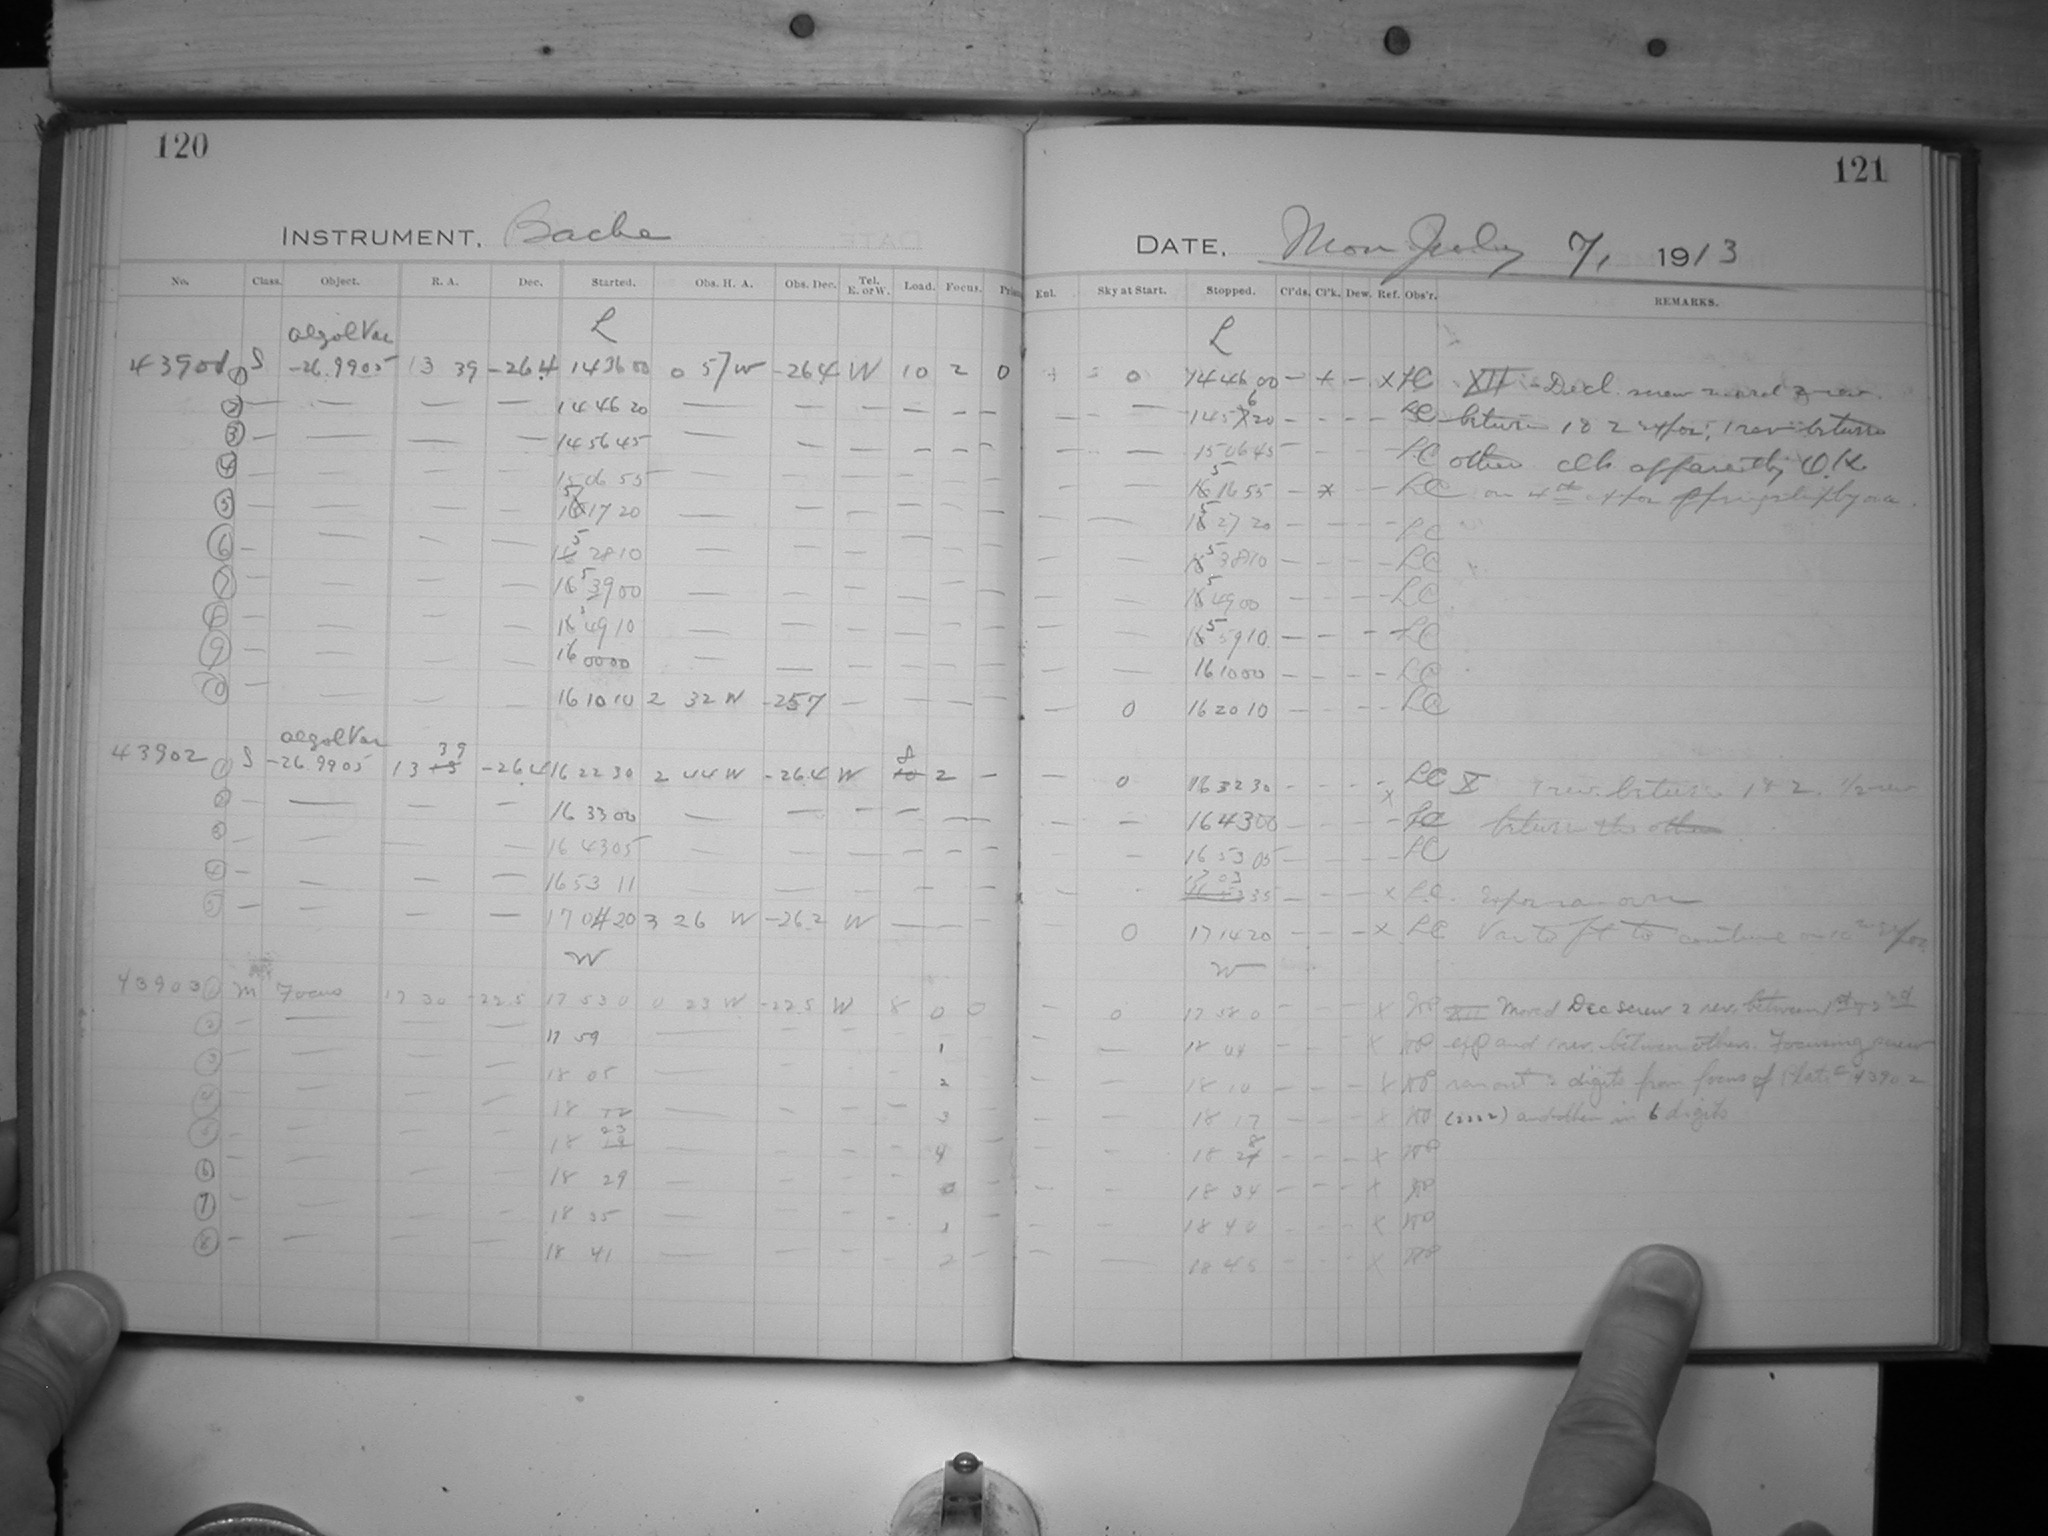 120
INSTRUMENT. Bache
No. Class. Object. R. A. Dec. Started. Obs. H. A. Obs. Dec. Tel. E. or W. Load. Focus.
L
Algol Var
43901 (1) S -26.9905 13 39 -26.4 14 36 00 0 57 W -26.4 W 10 2 0
(2) — — — — 14 46 20 — — — — —
(3) — — — — 14 56 45 — — — — —
(4) — — — — 15 06 55 — — — — —
(5) — — — — 15 17 20 — — — — —
(6) — — — — 15 28 10 — — — — —
(7) — — — — 15 39 00 — — — — —
(8) — — — — 15 49 10 — — — — —
(9) — — — — 16 00 00 — — — — —
(10) — — — — 16 10 10 2 32 W -25.7 — — — —
Algol Var
43902 (1) S -26.9905 13 39 -26.4 16 22 30 2 44 W -26.4 W 8 2 —
(2) — — — — 16 33 00 — — — — —
(3) — — — — 16 43 05 — — — — —
(4) — — — — 16 53 11 — — — — —
(5) — — — — 17 04 20 3 26 W -26.2 W — — —
W
43903 (1) M Focus 17 30 -22.5 17 53 0 0 23 W -22.5 W 8 0 0
(2) — — — — 17 59 — — — — 1
(3) — — — — 18 05 — — — — 2
(4) — — — — 18 12 — — — — 3
(5) — — — — 18 23 — — — — 4
(6) — — — — 18 29 — — — — 0
(7) — — — — 18 35 — — — — 1
(8) — — — — 18 41 — — — — 2
121
DATE. Mon July 7, 1913
Ent. Sky at Start. Stopped. Cl'ds. Cl'k. Dew. Ref. Obs'r. REMARKS.
L
0 14 46 00 — x — x LC XII - Decl. screw moved 2 rev.
— — 14 56 20 — — — — LC between 1 & 2 expos; 1 rev between
— — 15 06 45 — — — — LC others clk apparently O.K.
— — 15 16 55 — x — — LC on 4th expo
— — 15 27 20 — — — — LC
— — 15 38 10 — — — — LC
— — 15 49 00 — — — — LC
— — 15 59 10 — — — — LC
— — 16 10 00 — — — — LC
— 0 16 20 10 — — — — LC
— 0 16 32 30 — — — — LC X 1 rev. between 1 & 2. 1/2 rev
— — 16 43 00 — — — x LC between the others
— — 16 53 05 — — — — LC
— — 17 03 35 — — — x LC
0 17 14 20 — — — x LC Var to
W
— 0 17 58 0 — — — x XII Moved Dec screw 2 rev. between 1st & 2nd
— — 18 04 — — — x exp and 1 rev. between others. Focusing screw
— — 18 10 — — — x ran out 2 digits from focus of Plate 43902
— — 18 17 — — — x (2222) and then in 6 digits
— — 18 28 — — — x
— — 18 34 — — — x
— — 18 40 — — — x
— — 18 45 — — — x